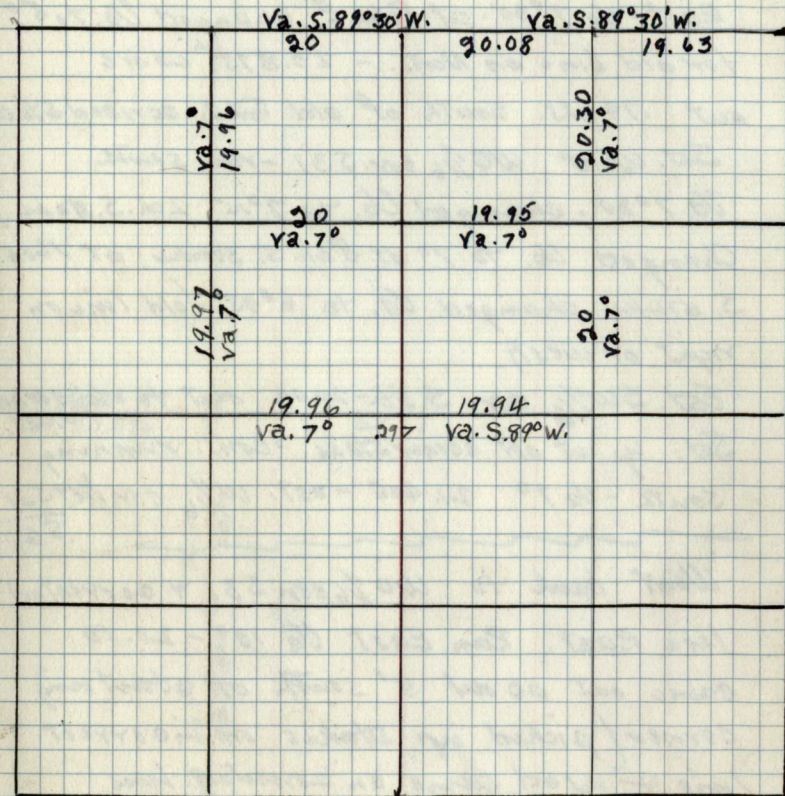 Va. S. 89°30'W. Va. S. 89°30'W.
20 20.08 19.63
Va. 7°
19.96
20.30
Va. 7°
20 19.95
Va. 7° Va. 7°
19.97
Va. 7°
20
Va. 7°
19.96 19.94
Va. 7° 297 Va. S. 89° W.